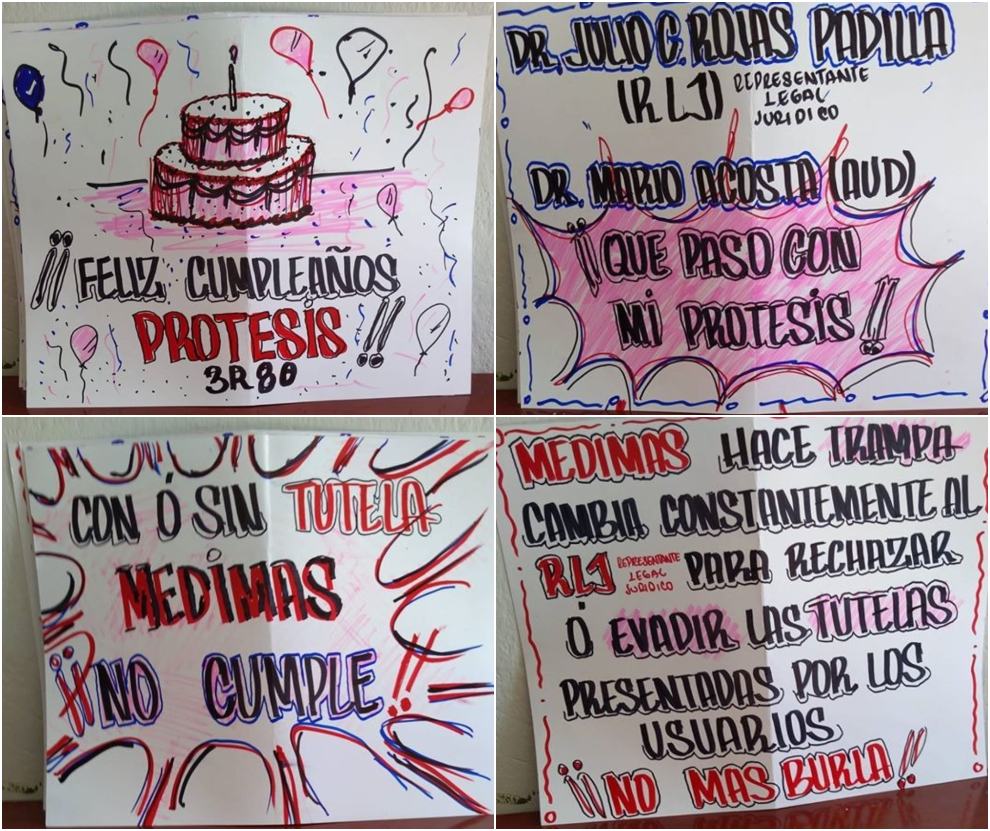 ¡¡FELIZ CUMPLEAÑOS
PROTESIS!!
3R80
DR. JULIO C. ROJAS PADILLA
(RLJ) REPRESENTANTE
LEGAL
JURIDICO
DR. MARIO ACOSTA (AUD)
¡¡QUE PASO CON
MI PROTESIS!!
CON Ó SIN TUTELA
MEDIMAS
¡¡NO CUMPLE!!
MEDIMAS HACE TRAMPA
CAMBIA CONSTANTEMENTE AL
RLJ REPRESENTANTE
LEGAL
JURIDICO
PARA RECHAZAR
Ó EVADIR LAS TUTELAS
PRESENTADAS POR LOS
USUARIOS
¡¡NO MAS BURLA!!